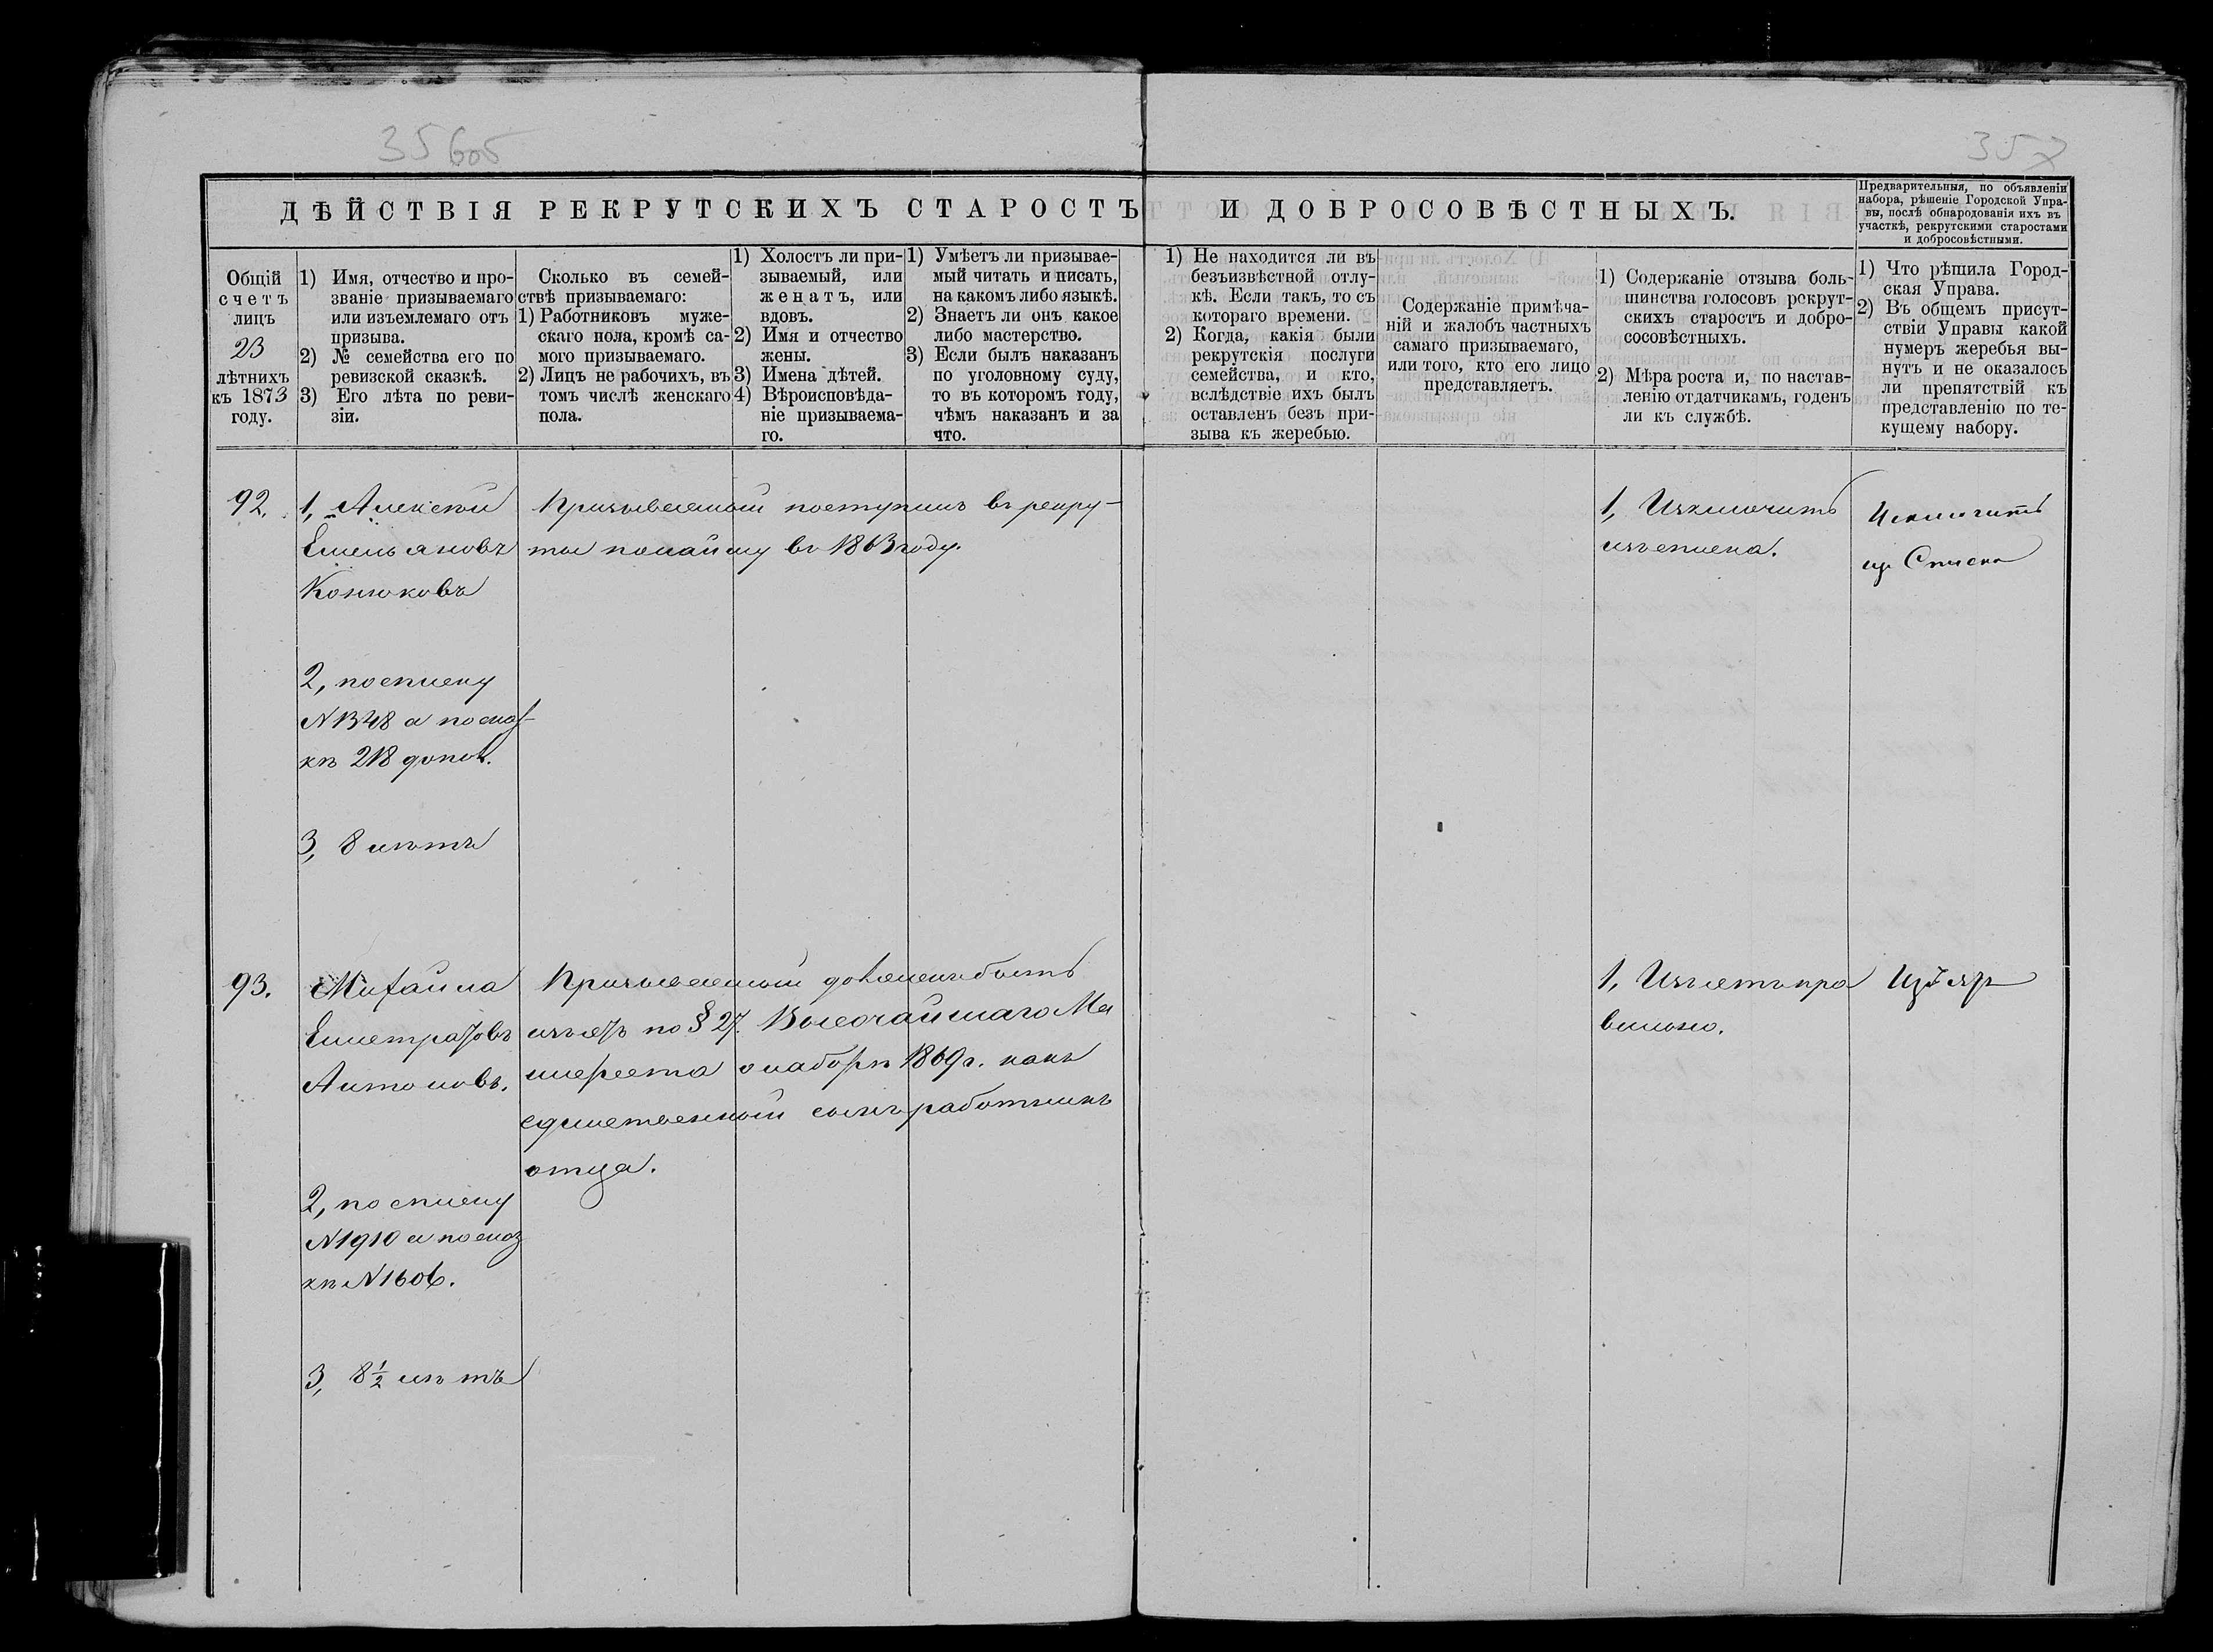 356об
357
ДѢЙСТВІЯ РЕКРУТСКИХЪ СТАРОСТЪ И ДОБРОСОВѢСТНЫХЪ.
Предварительныя, по объявленіи
набора, рѣшеніе Городской Упра-
вы, послѣ обнародованія ихъ въ
участкѣ, рекрутскими старостами
и добросовѣстными.
Общій
счетъ
лицъ
23
лѣтнихъ
къ 1873
году.
1) Имя, отчество и про-
званіе призываемаго
или изъемлемаго отъ
призыва.
2) № семейства его по
ревизской сказкѣ.
3) Его лѣта по реви-
зіи.
Сколько въ семей-
ствѣ призываемаго:
1) Работниковъ муже-
скаго пола, кромѣ са-
мого призываемаго.
2) Лицъ не рабочихъ, въ
томъ числѣ женскаго
пола.
1) Холостъ ли при-
зываемый, или
женатъ, или
вдовъ.
2) Имя и отчество
жены.
3) Имена дѣтей.
4) Вѣроисповѣда-
ніе призываема-
го.
1) Умѣетъ ли призывае-
мый читать и писать,
на какомъ либо языкѣ.
2) Знаетъ ли онъ какое
либо мастерство.
3) Если былъ наказанъ
по уголовному суду,
то въ которомъ году,
чѣмъ наказанъ и за
что.
1) Не находится ли въ
безъизвѣстной отлу-
кѣ. Если такъ, то съ
котораго времени.
2) Когда, какія были
рекрутскія послуги
семейства, и кто,
вслѣдствіе ихъ былъ
оставленъ безъ при-
зыва къ жеребью.
Содержаніе примѣча-
ній и жалобъ частныхъ
самаго призываемаго,
или того, кто его лицо
представляетъ.
1) Содержаніе отзыва боль-
шинства голосовъ рекрут-
скихъ старостъ и добро-
сосовѣстныхъ.
2) Мѣра роста и, по настав-
ленію отдатчикамъ, годенъ
ли къ службѣ.
1) Что рѣшила Город-
ская Управа.
2) Въ общемъ присут-
ствіи Управы какой
нумеръ жеребья вы-
нутъ и не оказалось
ли препятствій къ
представленію по те-
кущему набору.
92.
1, Алексѣй
Емельяновъ
Конюковъ
2, по списку
N 1348 а по сказ-
кѣ 218 допол.
3, 8 лѣтъ
Призываемый поступилъ въ рекру-
ты по найму въ 1863 году.
1, Изключить
изъ списка.
Исключить
из Списка
93.
Михайла
Елистратовъ
Антоновъ.
2, по списку
N 1910 а по сказ
кѣ N 1606.
3, 8½ лѣтъ
Призываемый долженъ быть
изъятъ по § 27. Высочайшаго Ма
нифеста о наборѣ 1869 г. какъ
единственный сынъ работникъ
отца.
1, Изъятъ пра
вильно.
Изъят